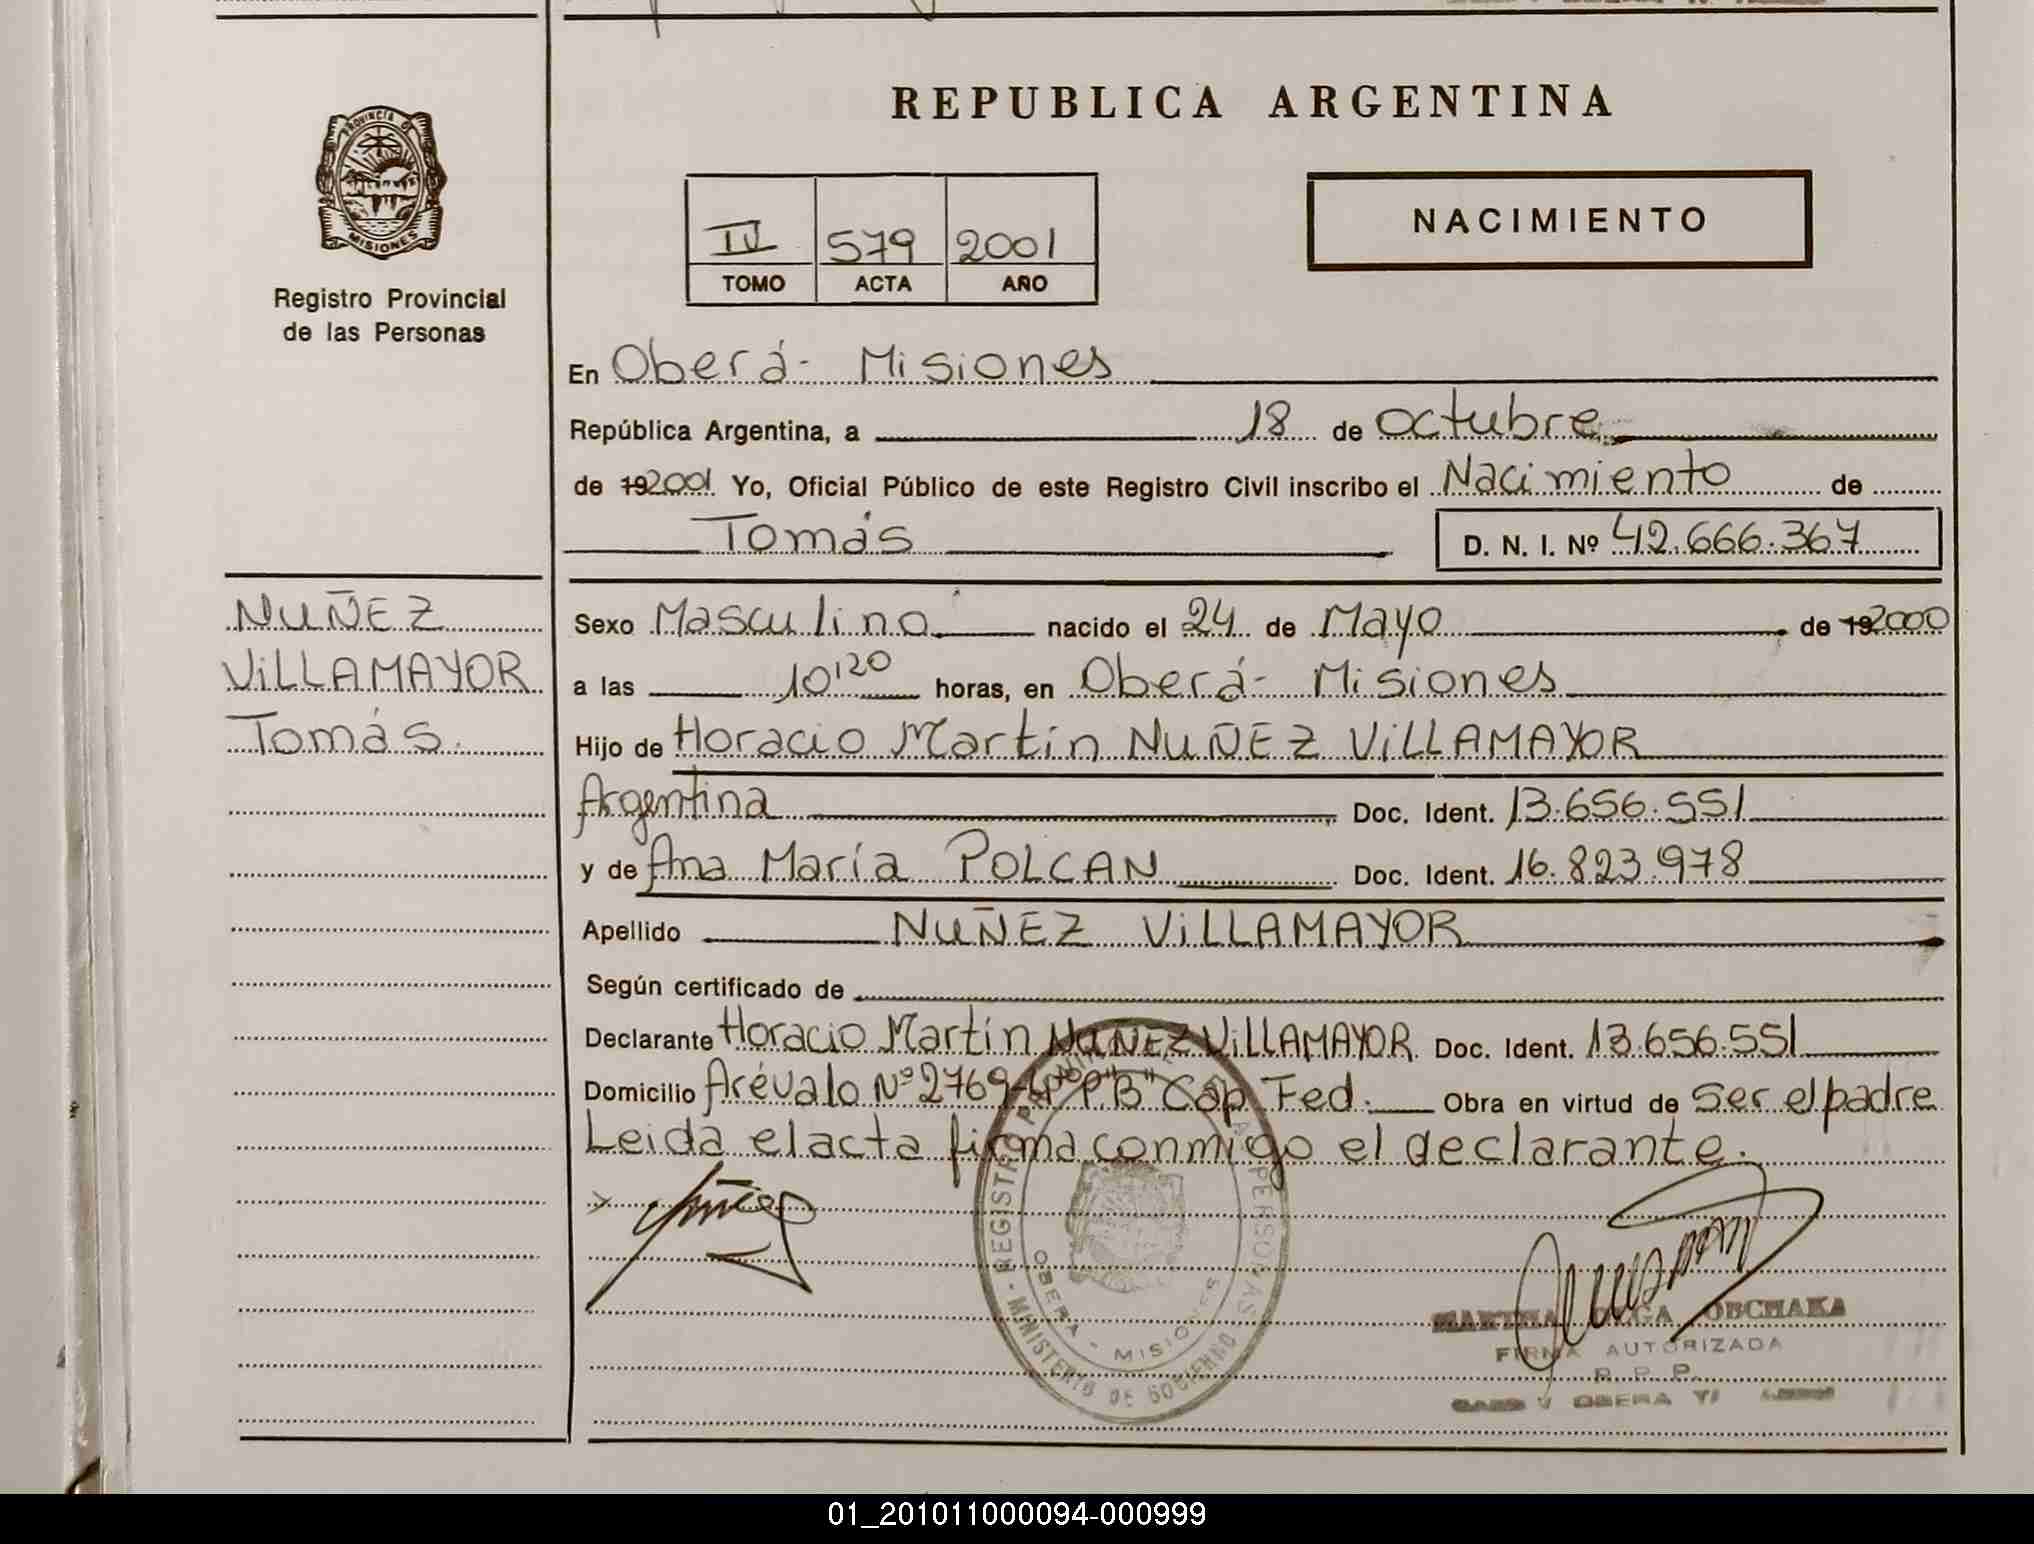 REPUBLICA ARGENTINA
PROVINCIA DE
MISIONES
Registro Provincial
de las Personas
IV 579 2001
TOMO ACTA AÑO
NACIMIENTO
En Oberá - Misiones
República Argentina, a 18 de octubre
de 192001 Yo, Oficial Público de este Registro Civil inscribo el Nacimiento de
Tomás D. N. I. Nº 42.666.367
NUÑEZ
VILLAMAYOR
Tomás.
Sexo Masculino nacido el 24 de Mayo de 192000
a las 10'20 horas, en Oberá - Misiones
Hijo de Horacio Martín NUÑEZ VILLAMAYOR
Argentina Doc. Ident. 13.656.551
y de Ana María POLCAN Doc. Ident. 16.823.978
Apellido NUÑEZ VILLAMAYOR
Según certificado de
Declarante Horacio Martín NUÑEZ VILLAMAYOR Doc. Ident. 13.656.551
Domicilio Arévalo Nº 2769-4ºP."B" Cap. Fed. Obra en virtud de ser el padre
Leida el acta firma conmigo el declarante.
REGISTRO PERSONAS
OBERA - MISIONES
MINISTERIO DE GOBIERNO
MARTHA OLGA OBCHAKA
FIRMA AUTORIZADA
R. P. P.
OBERA
01_201011000094-000999